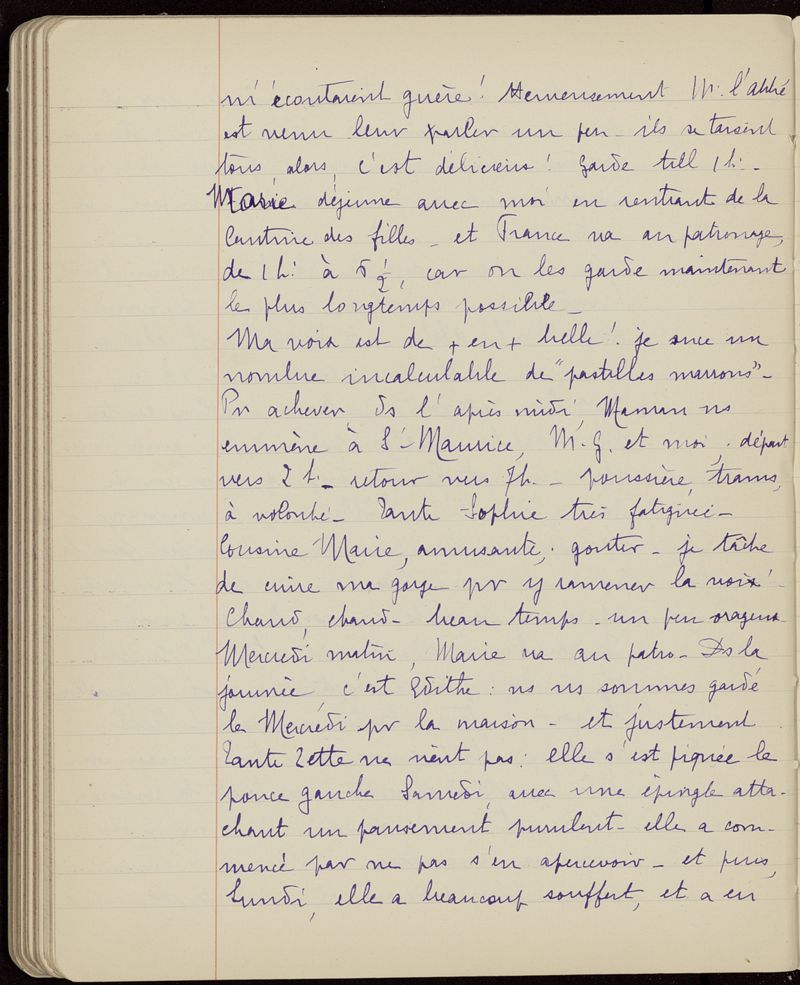 m'écoutaient guère! Heureusement Mr. l'abbé
est venu leur parler un peu - ils se taisent
tous, alors, c'est délicieux! Garde till 1 h: -
Marie déjeune avec moi en rentrant de la
Cantine des filles - et France va au patronage,
de 1 h: à 5 1/2, car on les garde maintenant
le plus longtemps possible -
Ma voix est de + en + belle! je suce un
nombre incalculable de "pastilles marrons" -
Pr achever ds l'après midi, Maman ns
emmène à St-Maurice, M.G. et moi, . départ
vers 2 h. - retour vers 7h. - poussière, trams,
à volonté - Tante Sophie très fatiguée -
Cousine Marie, amusante, . gouter - je tâche
de cuire ma gorge pr y ramener la voix!
Chaud, chaud - beau temps - un peu orageux -
Mercredi matin, Marie va au patro - Ds la
journée, c'est Edithe: ns ns sommes gardé
le Mercredi pr la maison - et justement
Tante Zette ne vient pas: elle s'est piquée le
pouce gauche Samedi, avec une épingle atta-
chant un pansement purulent - elle a com-
mencé par ne pas s'en apercevoir - et puis,
Lundi, elle a beaucoup souffert, et a eu